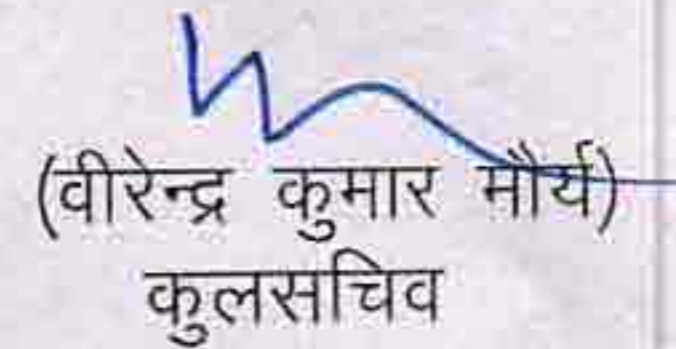 (वीरेन्द्र कुमार मौर्य)
कुलसचिव